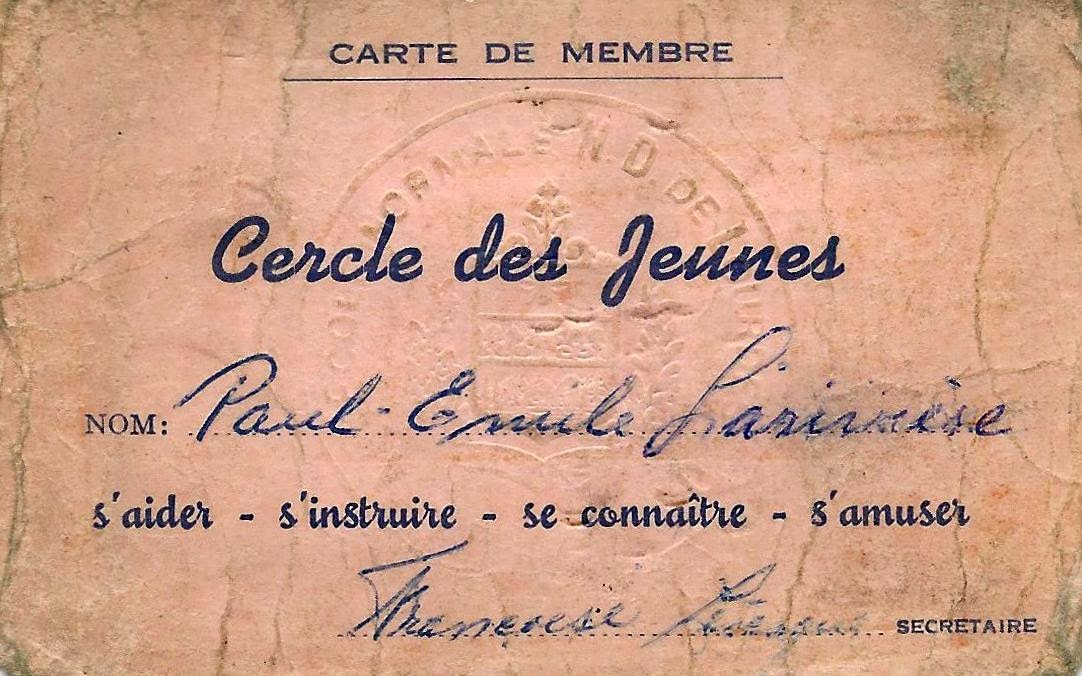 CARTE DE MEMBRE
NORMALE N.D. DE
Cercle des Jeunes
NOM: Paul-Emile Larivière
s'aider - s'instruire - se connaître - s'amuser
Françoise Lévesque SECRETAIRE